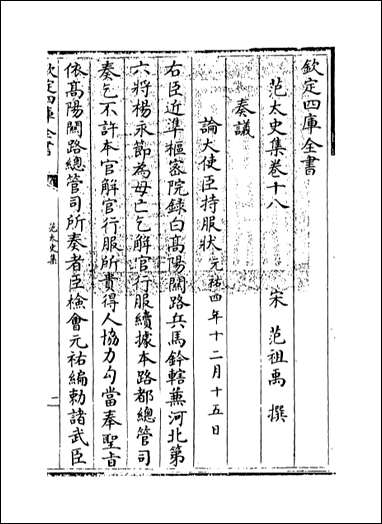 欽定四庫全書
范太史集卷十八
宋 范祖禹 撰
奏議
論大使臣持服狀 元祐四年十二月十五日
右臣近準樞密院録白髙陽關路兵馬鈐轄兼河北第
六將楊永節為母亡乞解官行服續據本路都總管司
奏乞不許本官解官行服所貴得人協力勾當奉聖㫖
依髙陽關路總管司所奏者臣檢會元祐編勅諸武臣
欽定四庫全書
范太史集
一